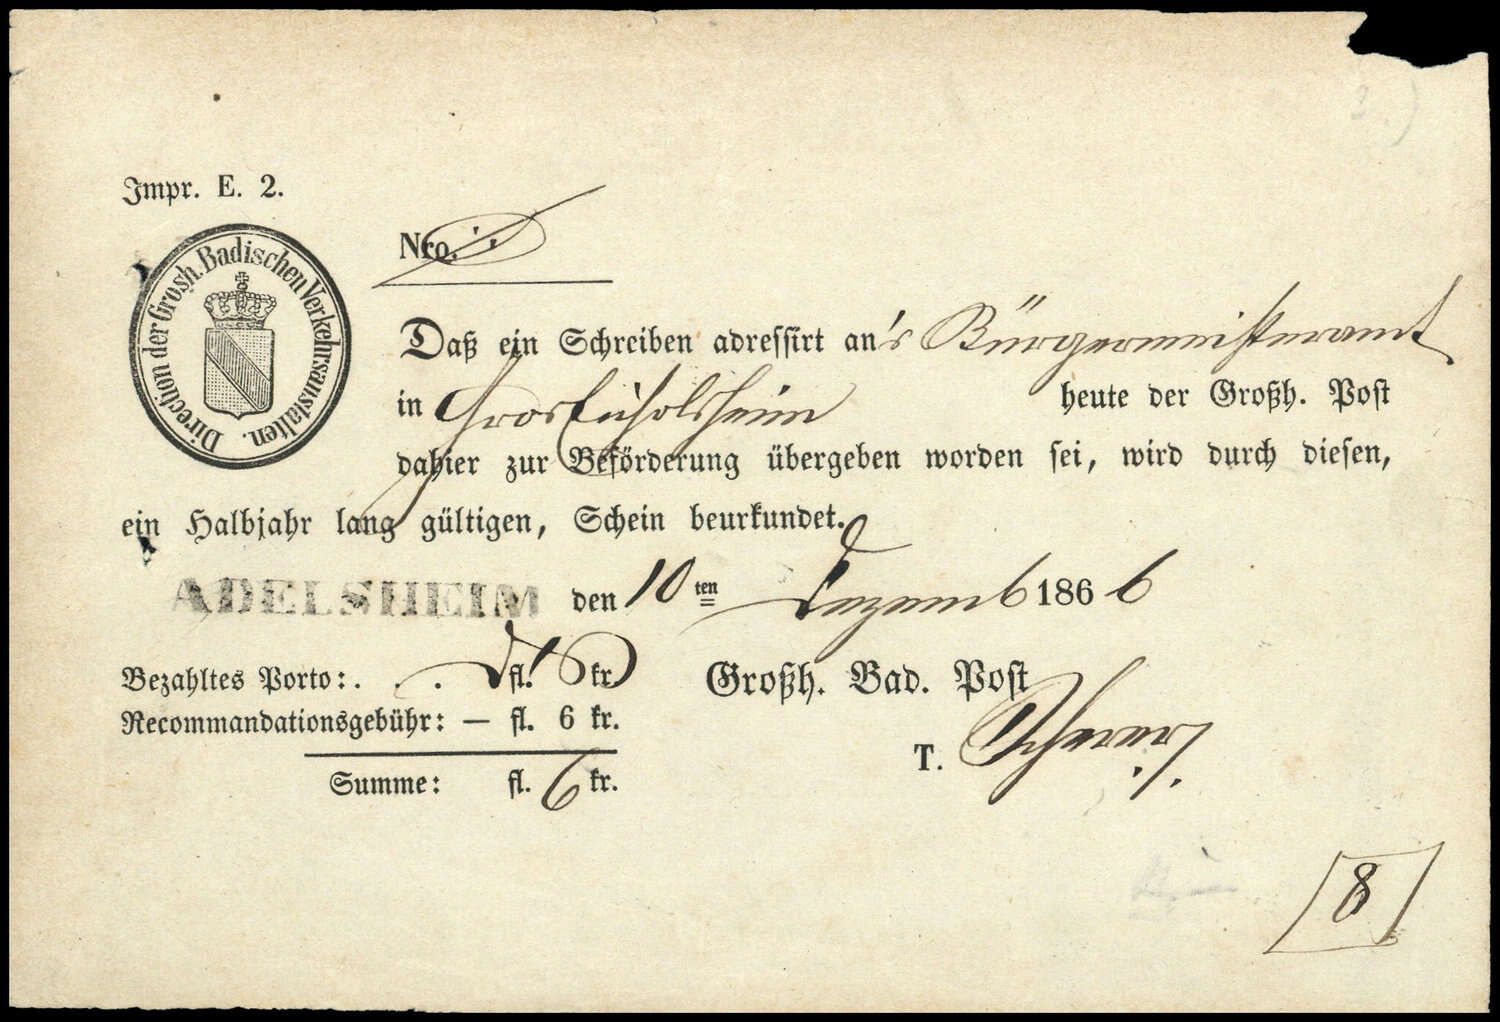 Impr. E. 2.
Direction der Grosh. Badischen Verkehrsanstalten.
Nro.
Daß ein Schreiben adressirt an's Bürgermeisteramt
in Groseicholsheim heute der Großh. Post
dahier zur Beförderung übergeben worden sei, wird durch diesen,
ein Halbjahr lang gültigen, Schein beurkundet.
ADELSHEIM den 10 ten Dezemb 1866
Bezahltes Porto: . . . fl. kr.
Großh. Bad. Post
Recommandationsgebühr: — fl. 6 kr.
T. Scherer
Summe: fl. 6 kr.
8